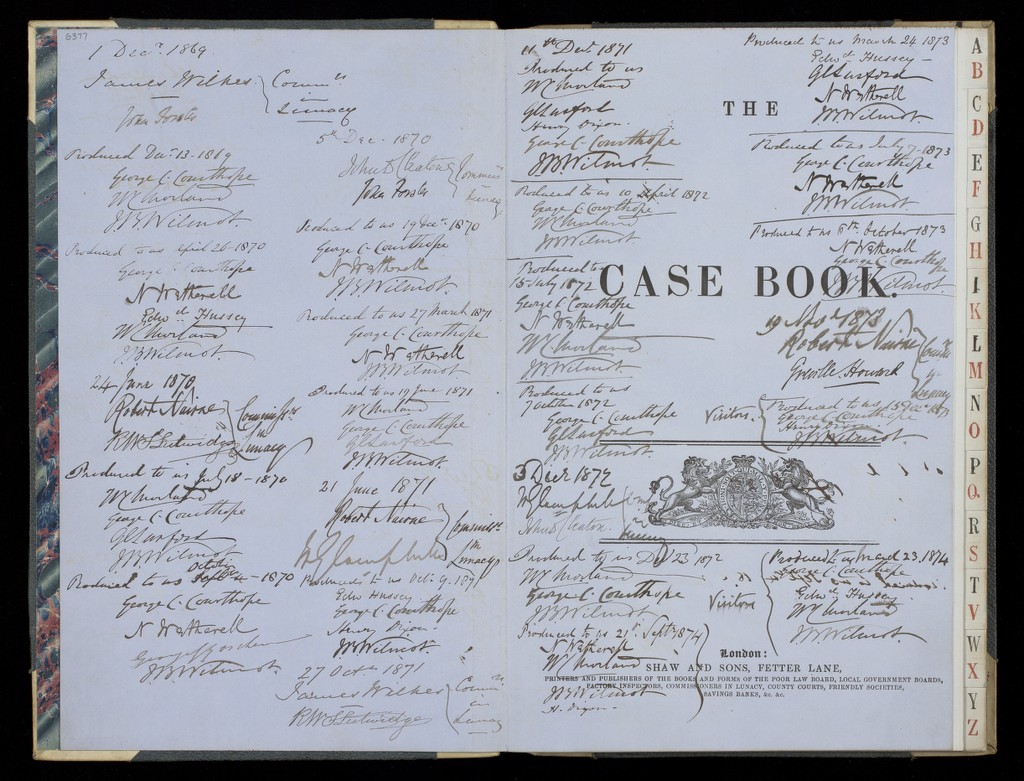 6377
1 Decr. 1869
James Wilkes
Commrs
in
Lunacy
John Forster
Produced Decr 13. 1869
George C. Courthope
Wm Morland
JBWilmot.
Produced to us April 26. 1870
George C. Courthope
N Wetherell
Edwd Hussey
Wm Morland
JBWilmot
24 June 1870
Robert Nairne
RWS Lutwidge
Commissrs
in
Lunacy
Produced to us July 18 - 1870
Wm Morland
George C. Courthope
JBWilmot
October
Produced to us Sept 4 - 1870
George C. Courthope
N Wetherell
JBWilmot.
5th Dec. 1870
John D Cleaton
John Forster
Commrs
in
Lunacy
Produced to us 19 Decr. 1870
George C. Courthope
N Wetherell
JBWilmot.
Produced to us 27 March 1871
George C. Courthope
N Wetherell
JBWilmot
Produced to us 19 June 1871
Wm Morland
George C. Courthope
JBWilmot.
21 June 1871
Robert Nairne
Commissrs
in
Lunacy
Produced to us Oct. 9. 1871
Edw Hussey
George C. Courthope
Henry Dixon.
JBWilmot
27 Octr. 1871
James Wilkes
RWS Lutwidge
Commrs
in
Lunacy
11th Decr 1871
Produced to us
Wm Morland
Henry Dixon.
George C. Courthope
JBWilmot.
Produced to us 10 April 1872
George C. Courthope
Wm Morland
JBWilmot
Produced to us
15 July 1872
George C. Courthope
N Wetherell
Wm Morland
JBWilmot.
Produced to us
7 October 1872
George C. Courthope
JBWilmot.
3 Decr 1872
John D Cleaton
Produced to us Dec 23 1872
Wm Morland
George C. Courthope
JBWilmot
Visitors
Produced to us 21st Septr 1874
N Wetherell
Wm Morland
JBWilmot
H. Dixon.
Produced to us March 24. 1873
Edwd Hussey
N Wetherell
JBWilmot.
THE
Produced to us July 7. 1873
George C. Courthope
N Wetherell
JBWilmot
Produced to us 6th October 1873
N Wetherell
George C. Courthope
JBWilmot
CASE BOOK.
19 Novr 1873
Robert Nairne
Greville Howard
Commrs
in
Lunacy
Visitors.
Produced to us 15 Decr 1873
George C. Courthope
Henry Dixon
JBWilmot
Produced to us March 23. 1874
George C. Courthope
Edwd Hussey
Wm Morland
JBWilmot.
London:
SHAW AND SONS, FETTER LANE,
PRINTERS AND PUBLISHERS OF THE BOOKS AND FORMS OF THE POOR LAW BOARD, LOCAL GOVERNMENT BOARDS,
FACTORY INSPECTORS, COMMISSIONERS IN LUNACY, COUNTY COURTS, FRIENDLY SOCIETIES,
SAVINGS BANKS, &c. &c.
A
B
C
D
E
F
G
H
I
K
L
M
N
O
P
Q
R
S
T
V
W
X
Y
Z